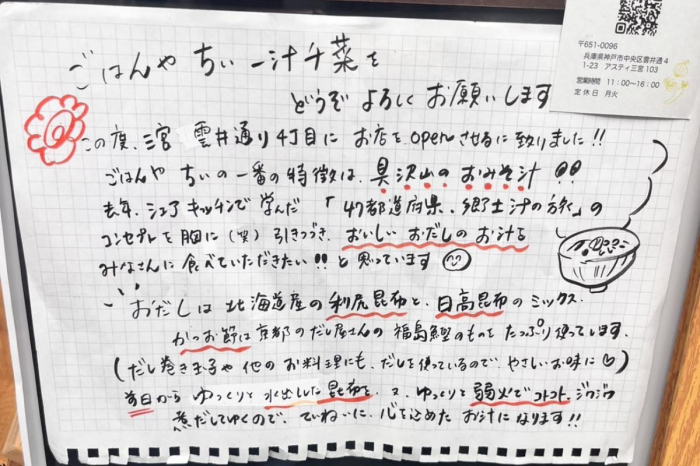 ごはんや ちぃ 一汁千菜を
どうぞ よろしく お願いします
〒651-0096
兵庫県神戸市中央区雲井通4
1-23 アスティ三宮103
営業時間 11:00〜16:00
定休日 月火
この度、三宮 雲井通り4丁目に お店を openさせるに致りました!!
ごはんや ちぃの一番の特徴は、具沢山の おみそ汁!!
去年、シェアキッチンで学んだ 「47都道府県、郷土汁の旅」の
コンセプトを胸に(笑) 引きつづき、おいしい おだしの お汁を
みなさんに食べていただきたい!! と思っています
おだしは北海道産の利尻昆布と、日高昆布のミックス.
かつお節は京都のだし屋さんの 福島鰹のものを たっぷり使ってします.
(だし巻き玉子や他のお料理にも、だしを使っているので、やさしいお味に♡)
毎日から ゆっくりと 水出しした昆布を、又、ゆっくりと弱火でコトコト、ジワジワ
煮だしてゆくので、ていねいに、心を込めた お汁になります!!